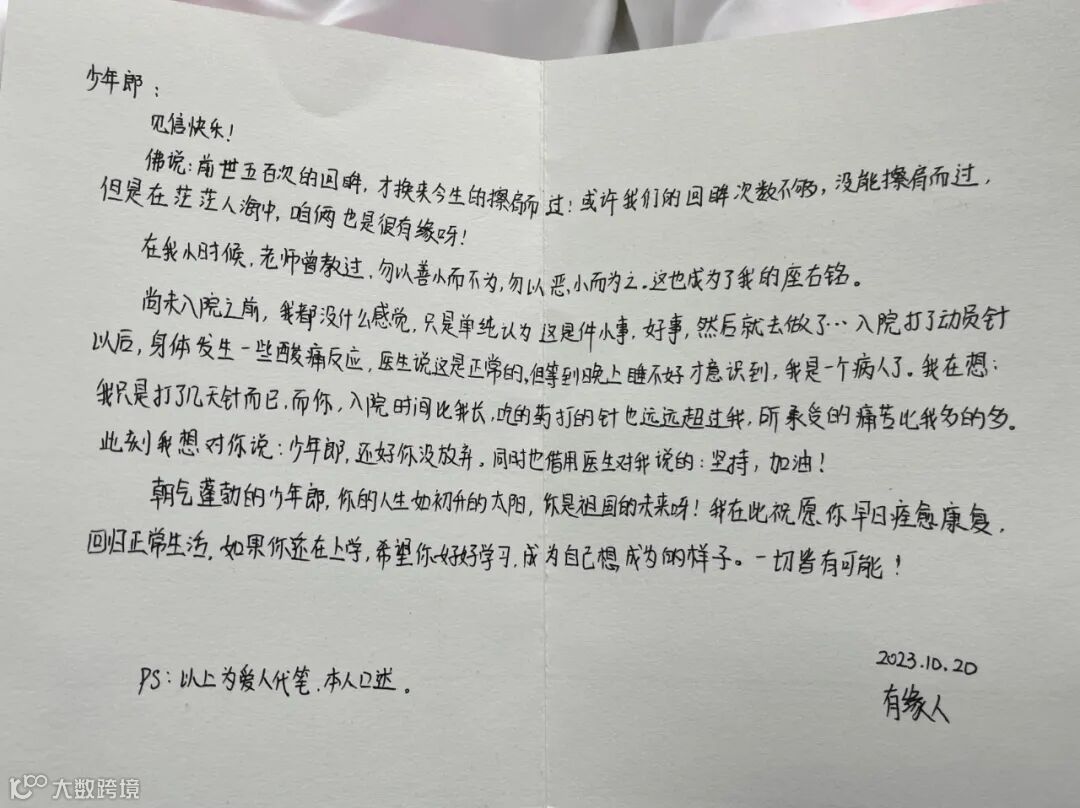 少年郎：
见信快乐！
佛说：前世五百次的回眸，才换来今生的擦肩而过！或许我们的回眸次数不够，没能擦肩而过，
但是在茫茫人海中，咱俩也是很有缘呀！
在我小时候，老师曾教过，勿以善小而不为，勿以恶小而为之。这也成为了我的座右铭。
尚未入院之前，我都没什么感觉，只是单纯认为这是件小事，好事，然后就去做了…入院打了动员针
以后，身体发生一些酸痛反应，医生说这是正常的，但等到晚上睡不好才意识到，我是一个病人了。我在想：
我只是打了几天针而已，而你，入院时间比我长，吃的药打的针也远远超过我，所承受的痛苦比我多的多。
此刻我想对你说：少年郎，还好你没放弃。同时也借用医生对我说的：坚持，加油！
朝气蓬勃的少年郎，你的人生如初升的太阳，你是祖国的未来呀！我在此祝愿你早日痊愈康复，
回归正常生活，如果你还在上学，希望你好好学习，成为自己想成为的样子。一切皆有可能！
2023.10.20
有缘人
PS：以上为爱人代笔，本人口述。
大数跨境